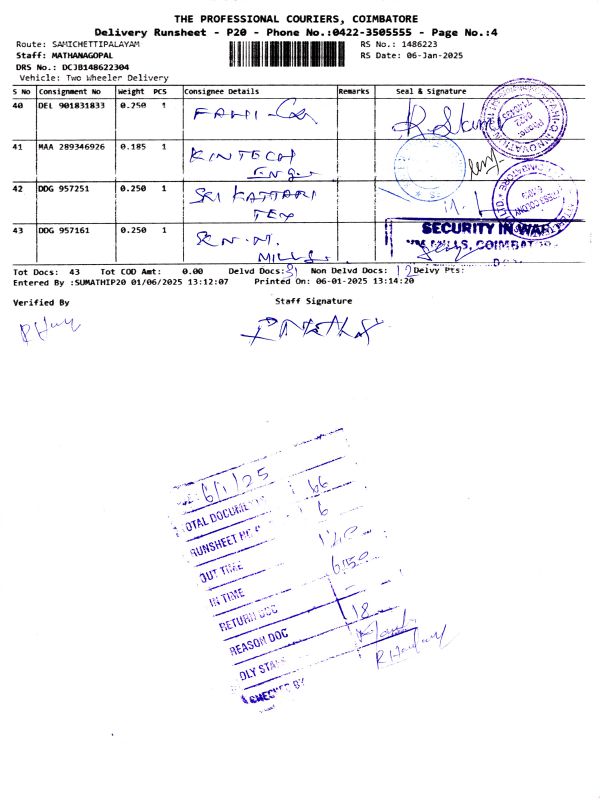 THE PROFESSIONAL COURIERS, COIMBATORE
Delivery Runsheet - P20 - Phone No.:0422-3505555 - Page No.:4
Route: SAMICHETTIPALAYAM
RS No.: 1486223
Staff: MATHANAGOPAL
RS Date: 06-Jan-2025
DRS No.: DCJB148622304
Vehicle: Two Wheeler Delivery
S No Consignment No Weight PCS Consignee Details Remarks Seal & Signature
40 DEL 901831833 0.250 1
41 MAA 289346926 0.185 1 KINTECH Eng.
42 DDG 957251 0.250 1 SRI KATTARI TEX
43 DDG 957161 0.250 1 MILLS.
SECURITY IN WAR
MILLS, COIMBAT
Tot Docs: 43 Tot COD Amt: 0.00 Delvd Docs: 31 Non Delvd Docs: 12 Delvy Pts:
Entered By :SUMATHIP20 01/06/2025 13:12:07 Printed On: 06-01-2025 13:14:20
Verified By
Staff Signature
6/1/25
TOTAL DOCUMENT 66
RUNSHEET 6
OUT TIME
IN TIME
RETURN DOC -
REASON DOC 18
DLY STAFF
CHECKED BY